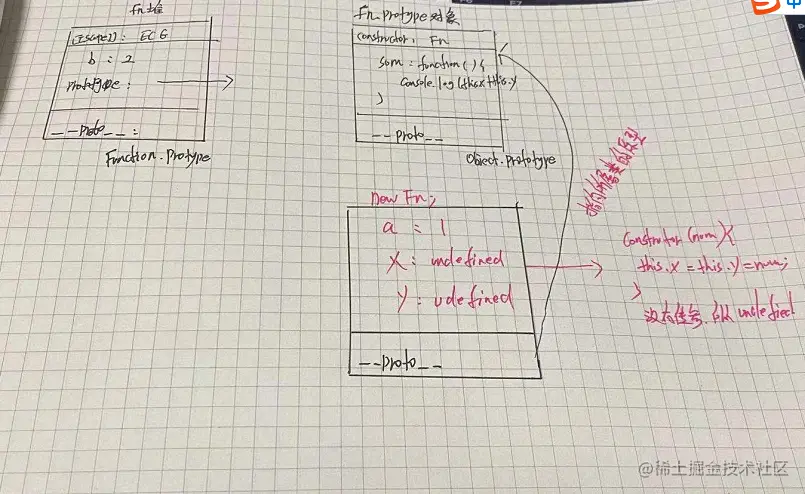 Fn堆
[[scope]]: ECG
b : 2
prototype :
__proto__ :
Function.Protype
Fn.protype对象
constructor: Fn
sum : function () {
console.log(this.x+this.y
}
__proto__
Object.prototype
指向所属类的原型
new Fn;
a = 1
x : undefined
y : udefined
__proto__
Construtor (num) {
this.x = this.y = num;
}
undefied
@稀土掘金技术社区
中